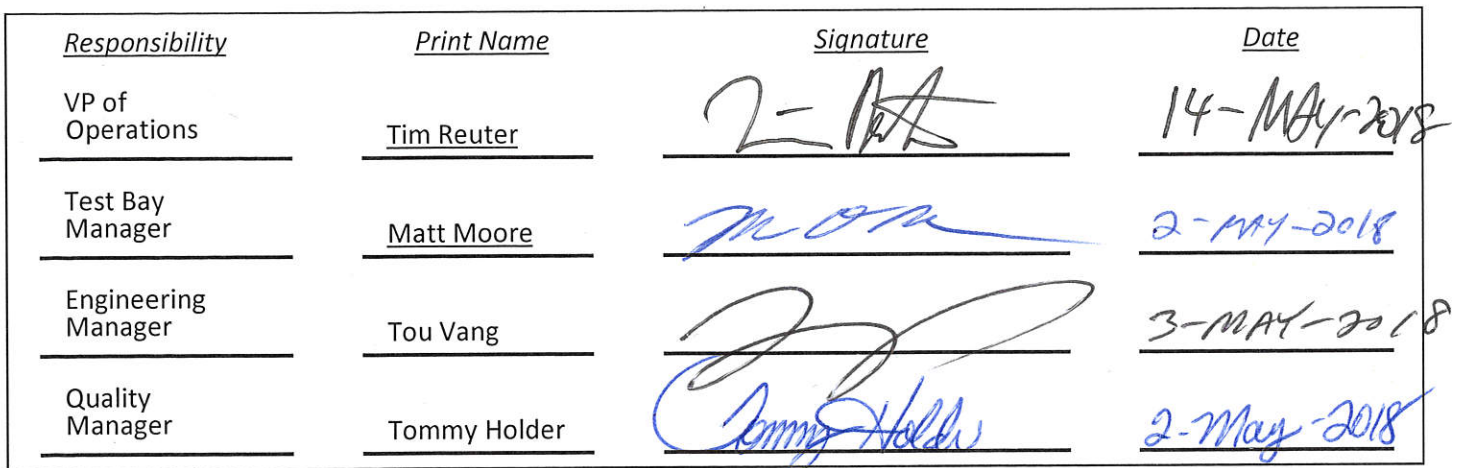 Responsibility Print Name Signature Date
VP of
Operations Tim Reuter 14-MAY-2018
Test Bay
Manager Matt Moore 2-MAY-2018
Engineering
Manager Tou Vang 3-MAY-2018
Quality
Manager Tommy Holder Tommy Holder 2-May-2018